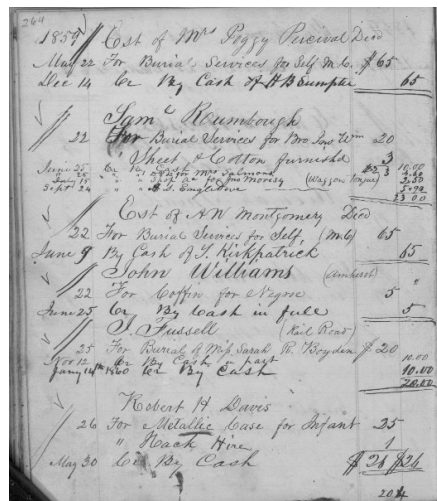 264
1859 Est of Mrs Peggy Percival Decd
May 22 For Burial Services for Self M.C. $65
Dec 14 Cr By Cash of H B Sumpter 65
Saml Rumbough
22 For Burial Services for Bro Jno Wm 20
Sheet & Cotton furnished 3
June 25 Cr By Cash 10.00
for Mrs Salmons
for Jno Morisey (Waggon Tongue) 2.50
Sept 24 " A. G. Engledove 5.94
23 00
Est of A W Montgomery Decd
22 For Burial Services for Self, (M.C) 65
June 9 By Cash of S. Kirkpatrick 65
John Williams (Amherst)
22 For Coffin for Negroe 5 "
June 25 Cr By Cash in full 5
T. Fussell (Rail Road)
25 For Burial of Miss Sarah R. Boyden $20
Nov 12 Cr By Cash in part 10.00
Jany 14th 1860 Cr By Cash 10.00
20.00
Robert H. Davis
26 For Metallic Case for Infant 25
" Hack Hire 1
May 30 Cr By Cash $26 $26
204